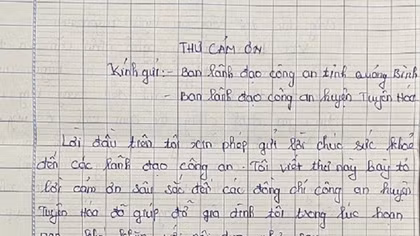 THƯ CẢM ƠN
Kính gửi: - Ban lãnh đạo công an tỉnh Quảng Bình
- Ban lãnh đạo công an huyện Tuyên Hóa
Lời đầu tiên tôi xin phép gửi lời chúc sức khoẻ
đến các lãnh đạo công an. Tôi viết thư này bày tỏ
lời cảm ơn sâu sắc đối các đồng chí công an huyện
Tuyên Hóa đã giúp đỡ gia đình tôi trong lúc hoạn